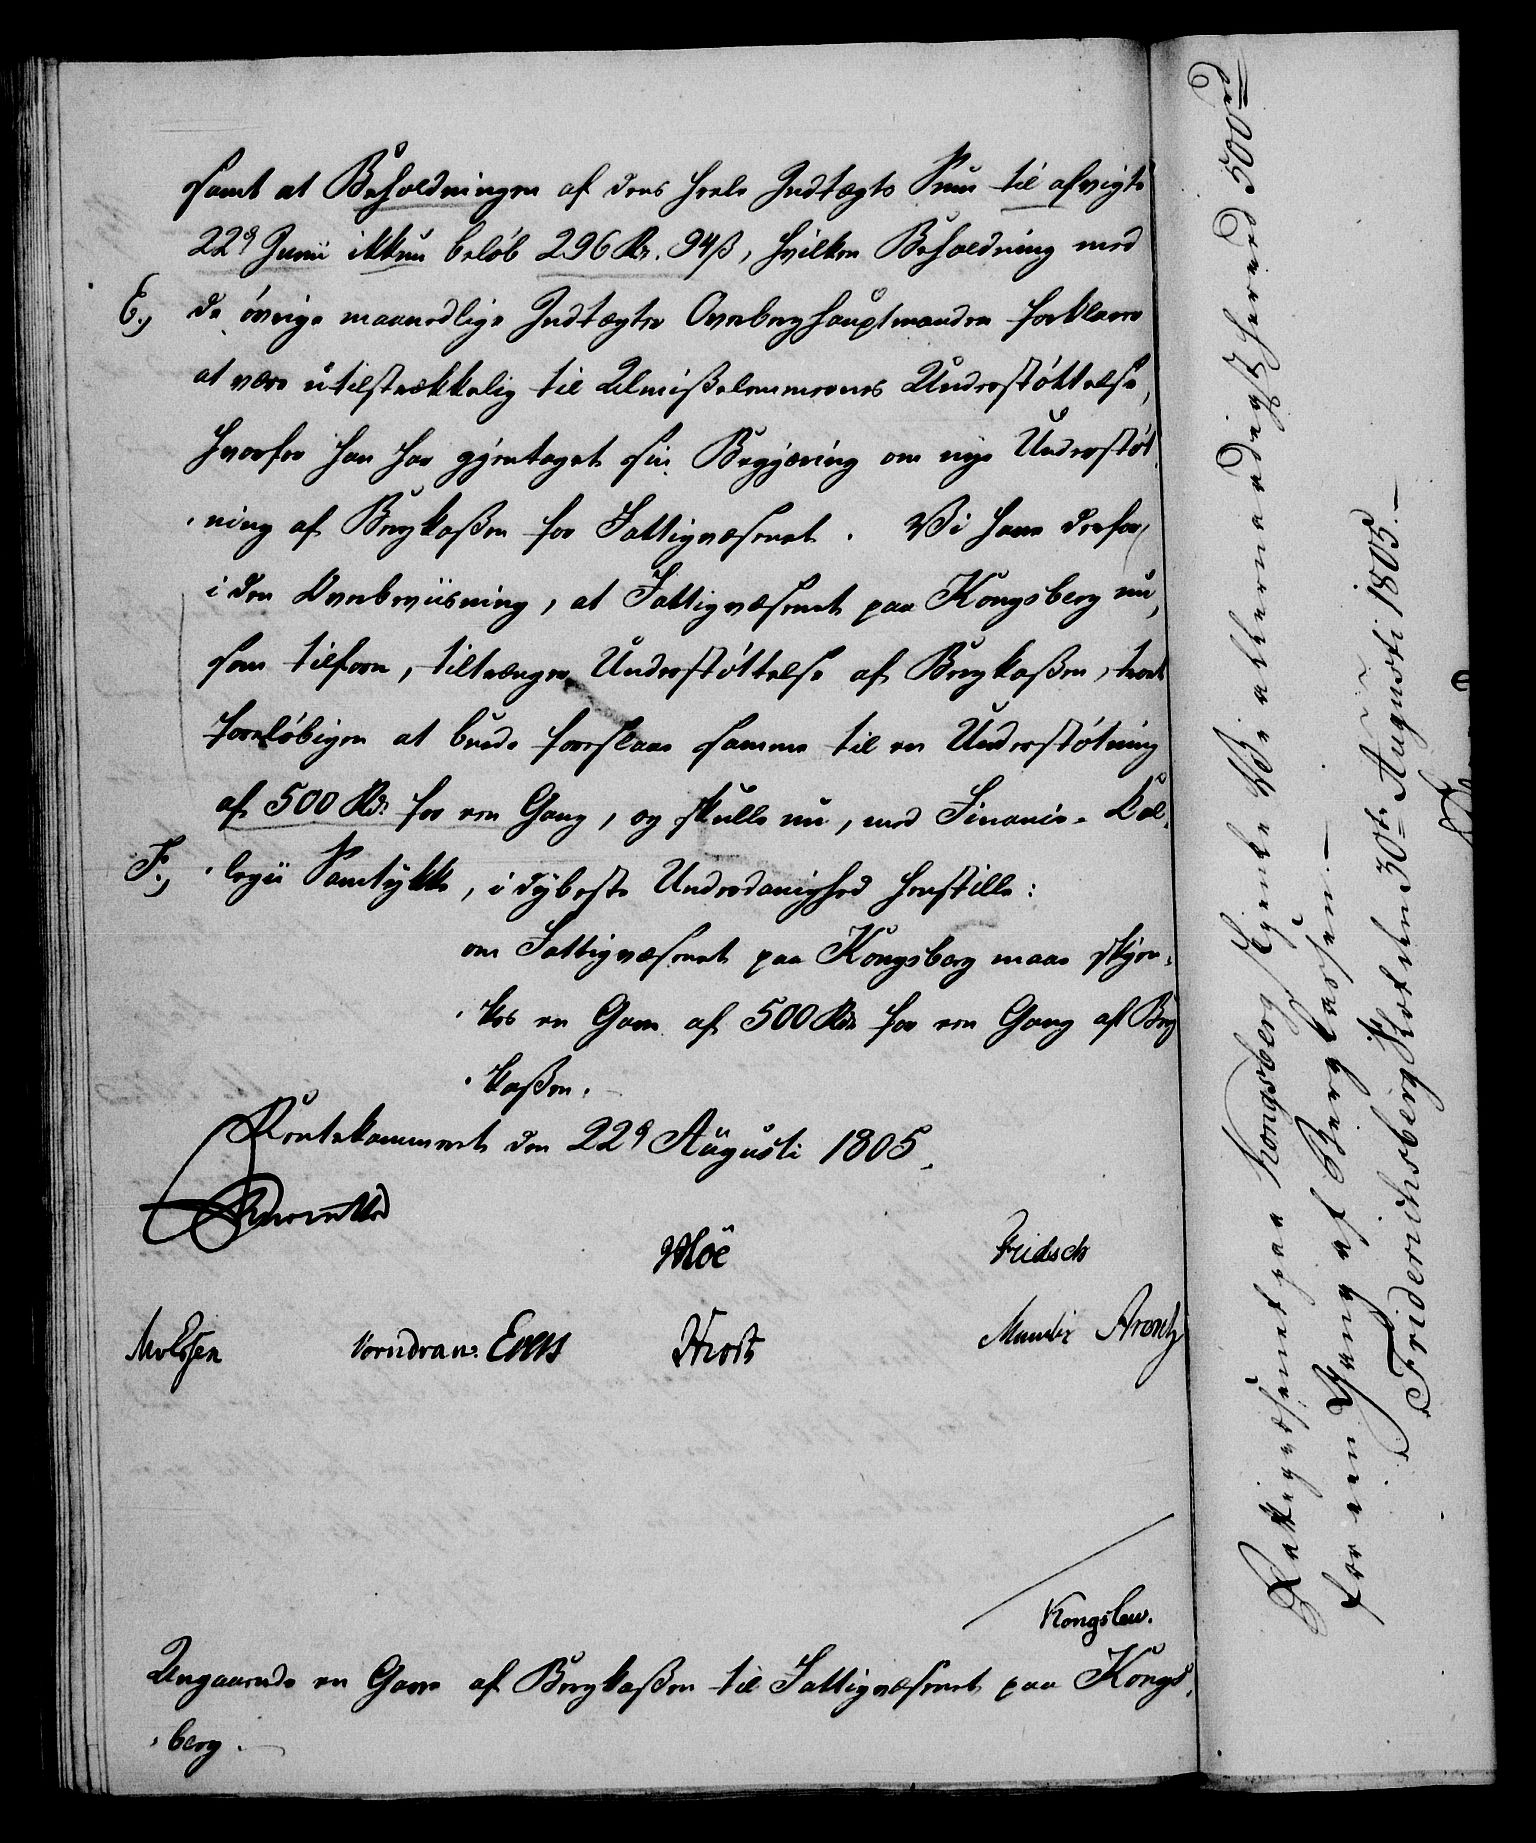 samt at Beholdningen af dens heele Indtægts Sum til afvigte
22d Junii ikkun beløb 296 Rd. 94ß, hvilken Beholdning med
E.) de øvrige maanedlige Indtægter Overberghauptmanden forklarer
at være utilstrækkelig til Almisselemmernes Understøttelse,
hvorfor han har gjentaget sin Begjæring om nye Understøt-
ning af Bergkaßen for Fattigvæsenet. Vi have derfor,
i den Overbeviisning, at Fattigvæsenet paa Kongsberg nu,
som tilforn, tiltrænger Understøttelse af Bergkaßen, troet
foreløbigen at burde foreslaae samme til en Understøtning
af 500 Rd. for een Gang, og skulle nu, med Finants-Col-
F.) legii Samtykke, i dybeste Underdanighed henstille:
om Fattigvæsenet paa Kongsberg maae skjen-
kes en Gave af 500 Rd. for een Gang af Berg
kaßen.
Rentekammeret den 22d Augusti 1805.
Wloë Fridsch
Vorndran. Evers Arentz
Kongslew.
Angaaende en Gave af Bergkaßen til Fattigvæsenet paa Kongs-
berg.
Fattigvæsenet paa Kongsberg skjenke Vi allernaadigst herved 500 rd
for een Gang af Bergkassen.
Friderichsberg Slot den 30te Augusti 1805.